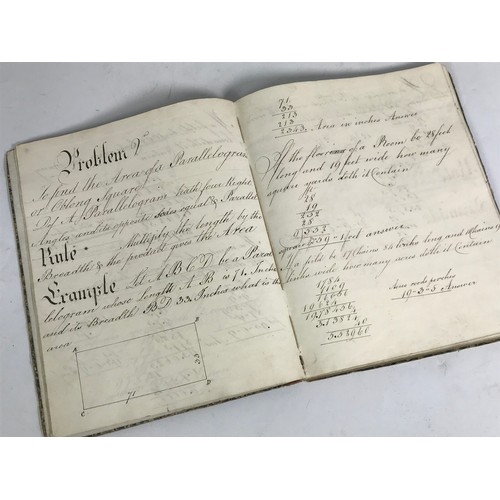 Problem 2d
To find the Area of a Parallelogram
or Oblong Square
Def A Parallelogram hath four Right
Angles and its opposite sides equal & Parallel
Rule Multiply the length by the
Breadth & the product gives the Area
Example Let A B C D be a Para
lelogram whose length A B is 71 Inches
and its Breadth B D 33 Inches what is the
area
A B
33
C 71 D
71
33
213
213
2343 Area in inches Answer
If the floor of a Room be 28 feet
long and 19 feet wide how many
square yards doth it Contain
28
19
252
28
9)532
square 59 1 foot answer
If a field be 17 Chains 84 links long and
links wide how many acres doth it Contain
1784
19.3.3 Answer